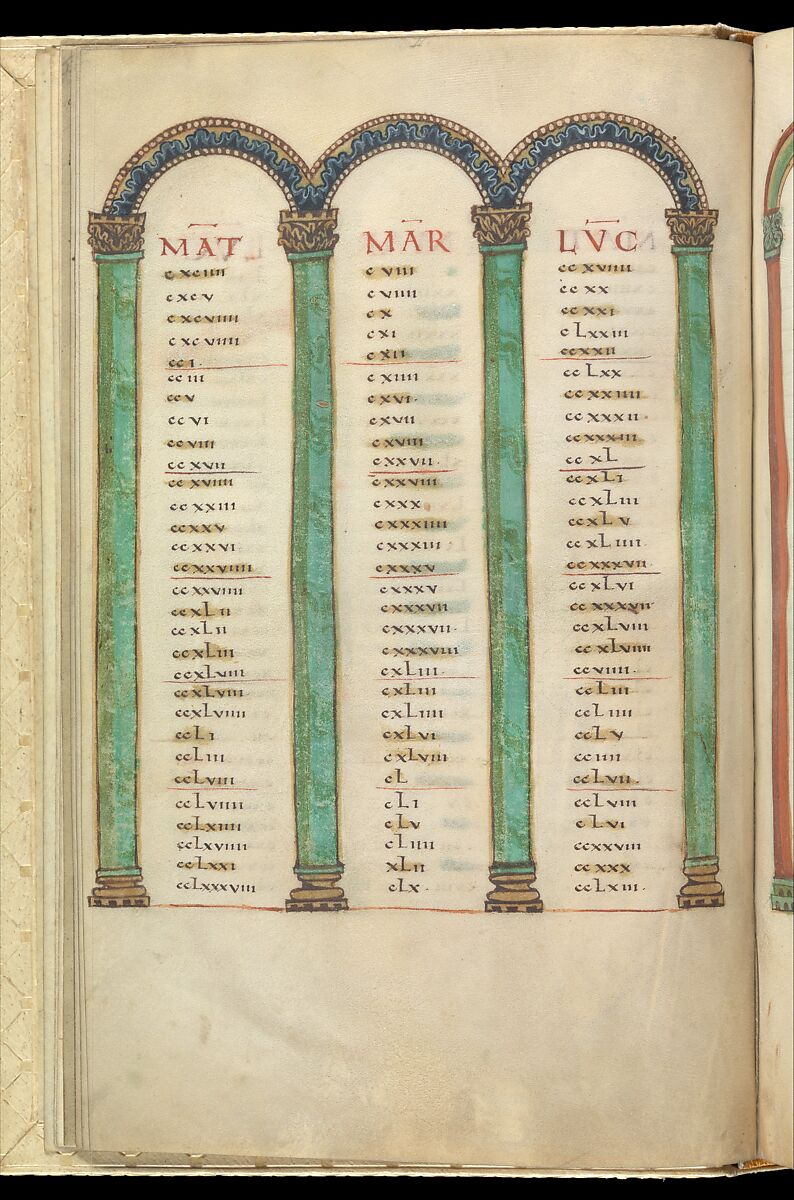 MAT MAR LVC
cxciiii cviii ccxviiii
cxcv cviiii ccxx
cxcviiii cx ccxxi
cxcviiii cxi cLxxiii
cci. cxii ccxxii
cciii cxiiii ccLxx
ccv cxvi. ccxxiiii
ccvi cxvii ccxxxii.
ccviii cxviii ccxxxiii
ccxvii cxxvii. ccxL
ccxviiii cxxviii ccxLi
ccxxiii cxxx ccxLiii
ccxxv cxxxiiii ccxLv
ccxxvi cxxxiii ccxLiiii
ccxxviiii cxxxv ccxxxvii
ccxxviiii cxxxv ccxLvi
ccxLii cxxxvii ccxxxvii
ccxLii cxxxvii. ccxLviii
ccxLiii cxxxviii ccxLviiii
ccxLviii cxLiii. ccviiii.
ccxLviii cxLiii ccLiii
ccxLviiii cxLiiii ccLiiii
ccLi cxLvi ccLv
ccLiii cxLviii cciiii
ccLviii cL ccLvii.
ccLviiii cLi ccLviii
ccLxiiii cLv cLvi
ccLxviiii cLiiii ccxxviii
ccLxxi xLii ccxxx
ccLxxxviii cLx. ccLxiii.